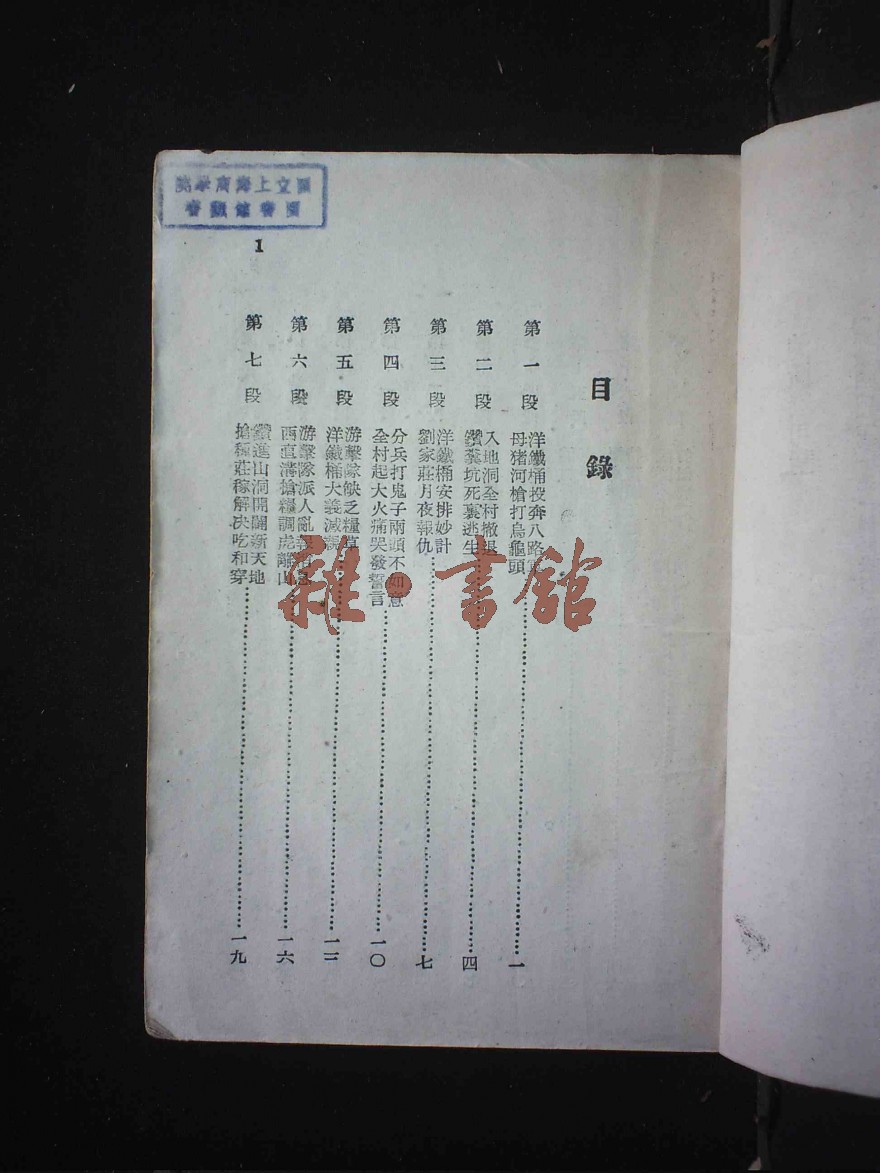 國立上海商學院
圖書館藏書
1
目錄
第一段
洋鐵桶投奔八路軍
母猪河槍打烏龜頭
一
第二段
入地洞全村撤退
鑽糞坑死裏逃生
四
第三段
洋鐵桶安排妙計
劉家莊月夜報仇
七
第四段
分兵打鬼子兩頭不如意
全村起大火痛哭發誓言
一〇
第五段
游擊隊缺乏糧草
洋鐵桶大義滅親
第六段
游擊隊派人亂報消息
西直溝搶糧調虎離山
一六
第七段
鑽進山洞開闢新天地
搶種莊稼解决吃和穿
一九
雜·書館